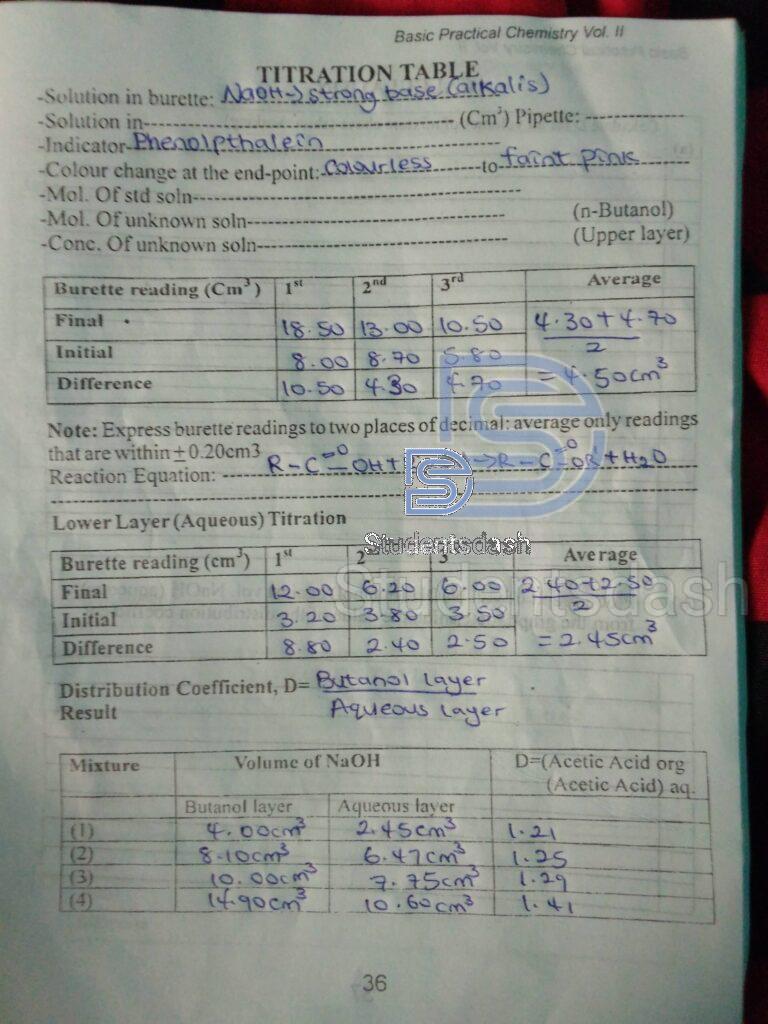 Basic Practical Chemistry Vol. II
TITRATION TABLE
-Solution in burette: NaOH→strong base (alkalis)
-Solution in---------- (Cm³) Pipette: ----------
-Indicator-Phenolpthalein----------
-Colour change at the end-point: Colourless------to faint pink
-Mol. Of std soln----------
-Mol. Of unknown soln---------- (n-Butanol)
-Conc. Of unknown soln---------- (Upper layer)
Burette reading (Cm³) 1st 2nd 3rd Average
Final 18.50 13.00 10.50 4.30+4.70
Initial 8.00 8.70 5.80 2
Difference 10.50 4.30 4.70 =4.50cm³
Note: Express burette readings to two places of decimal: average only readings
that are within ±0.20cm3
Reaction Equation: R-C=O OH+ →R-C=O + H2O
Lower Layer (Aqueous) Titration
Studentsdash
Burette reading (cm³) 1st 2 3 Average
Final 12.00 6.20 6.00 2.40+2.50
Studentsdash
Initial 3.20 3.80 3.50 2
Difference 8.80 2.40 2.50 =2.45cm³
Distribution Coefficient, D= Butanol layer
Result Aqueous layer
Mixture Volume of NaOH D=(Acetic Acid org
(Acetic Acid) aq.
Butanol layer Aqueous layer
(1) 4.00cm³ 2.45cm³ 1.21
(2) 8.10cm³ 6.47cm³ 1.25
(3) 10.00cm³ 7.75cm³ 1.29
(4) 14.90cm³ 10.60cm³ 1.41
36